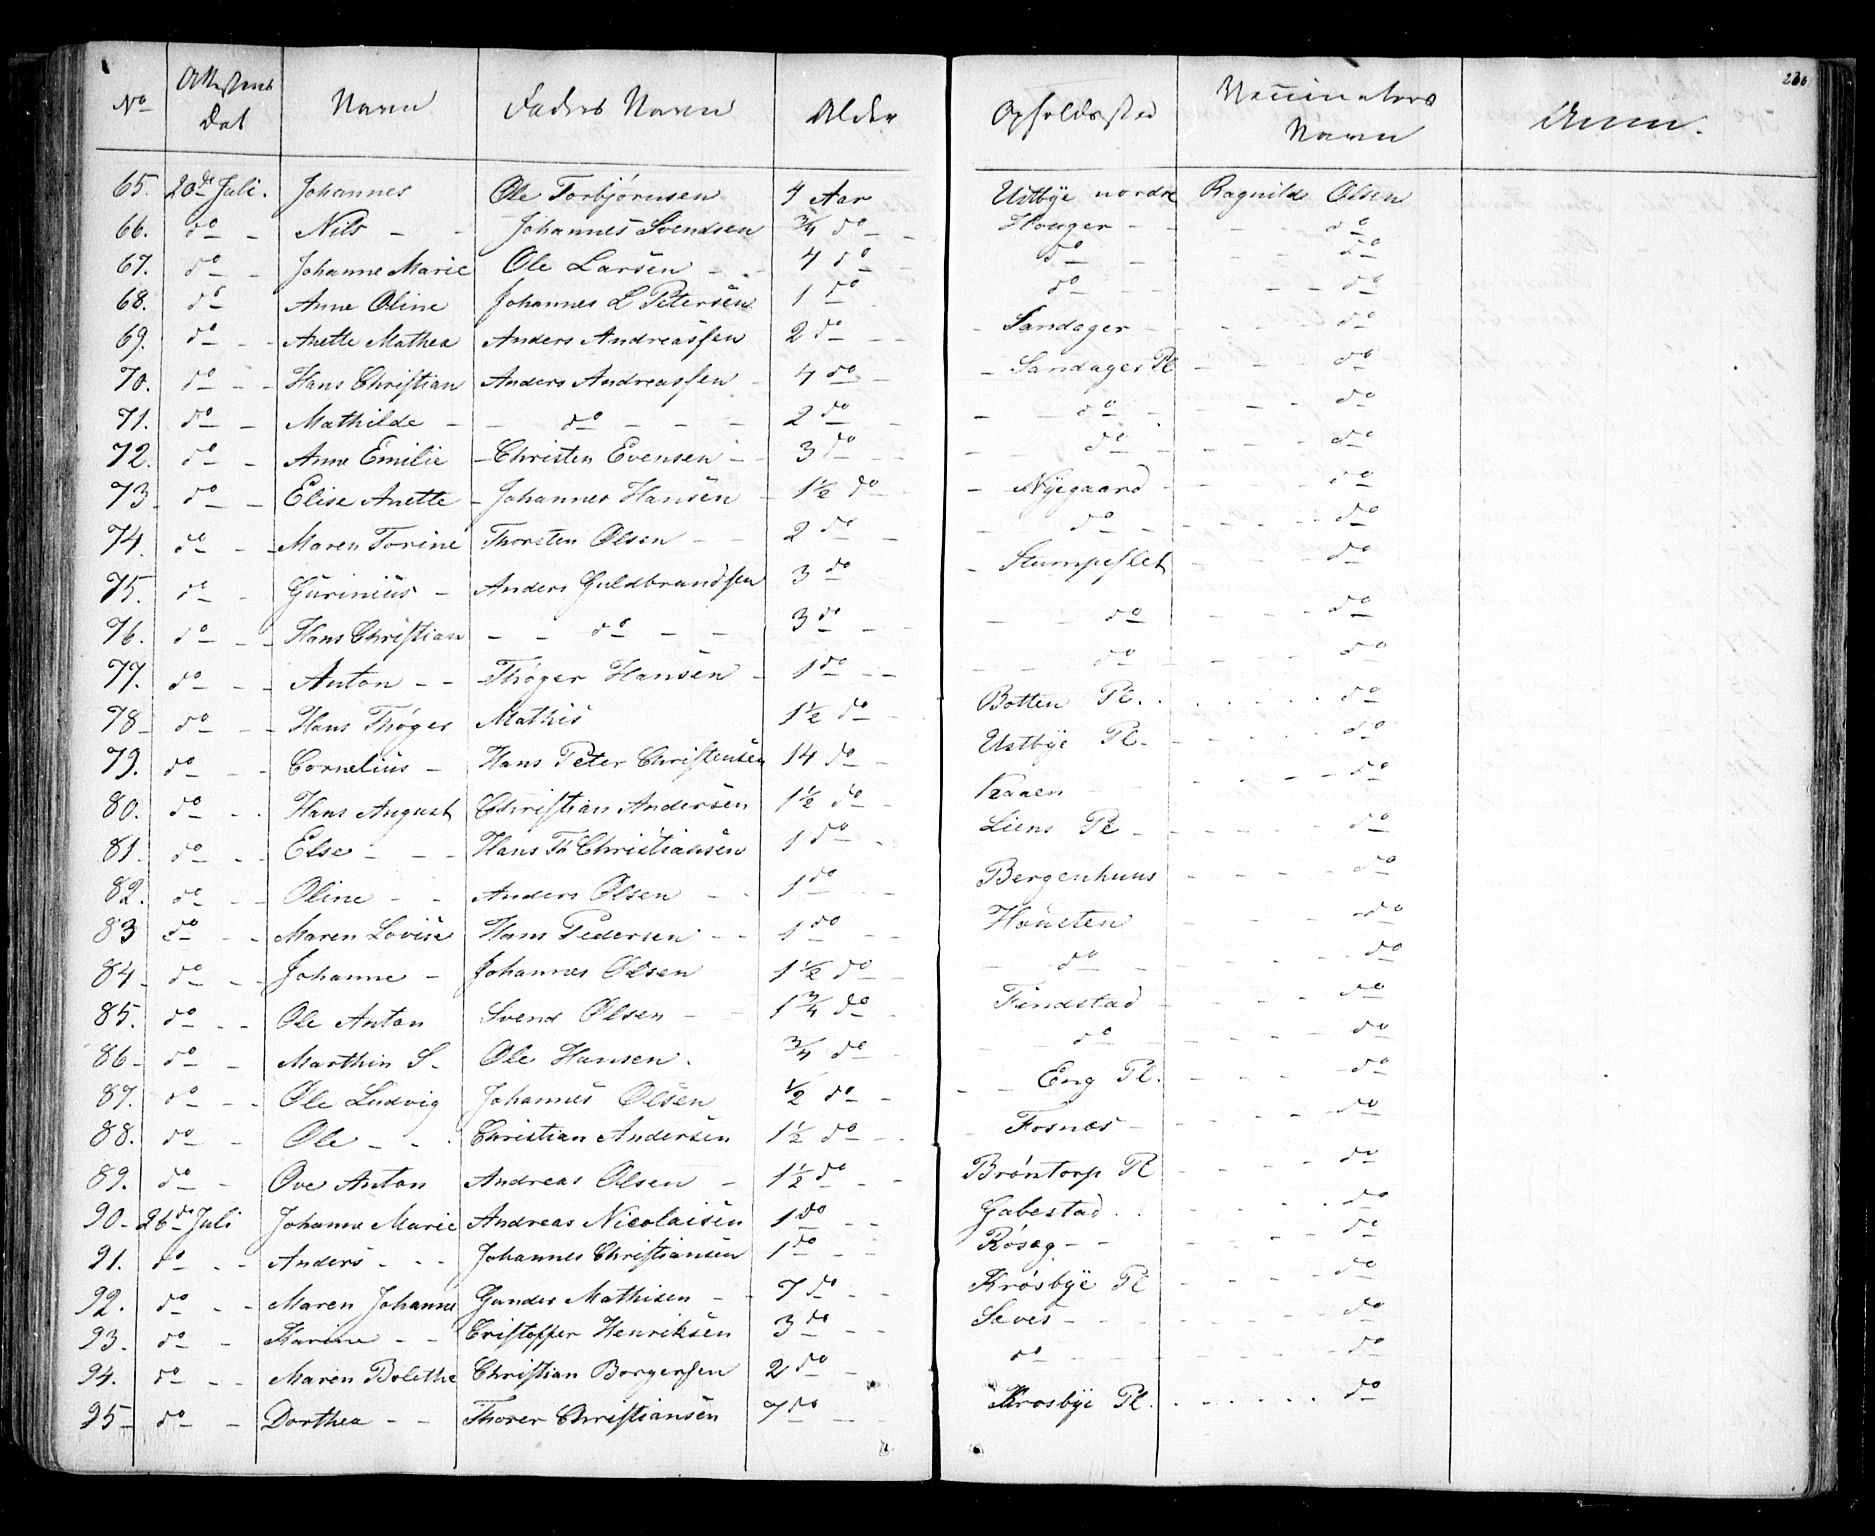 236
No Attestens Dat Navn Faders Navn Alder Opholdssted Vaccinators Navn Anm.
65. 20de Juli. Johannes Ole Torbjørnsen 4 Aar Ustbye nordre Ragnilde Olsen
66. do - Nils - - Johannes Svendsen 3/4 do - - Houger - - - - do
67. do - Johanne Marie Ole Larsen - - 4 do - do - do
68. do - Anne Oline Johannes L Petersen 1 do do - - - - do
69. do - - Anette Mathea Anders Andreassen 2 do - - - Sandager - - - - do
70. do - - Hans Christian Anders Andreassen - 4 do - - Sandager Pl - - do
71. do - Mathilde - - do - - - 2 do - - - do - - - - do
72. do - Anne Emilie - Christen Evensen - 3 do - - - - do - - - - do
73 - do - Elise Anette - Johannes Hansen - 1½ do - - Nyegaard - - - - do
74. do - - Maren Torine Thorsten Olsen - - 2 do - - do - - - - - do
75. do - Gurinius - Anders Guldbrandsen 3 do - Stumpeslet - - - do
76. do - - Hans Christian - - do - - 3 do - - - - do - - - - do
77. do - - Anton - - Thøger Hansen - 1 do - - - - do - - - do
78 - do - - Hans Thøger Mathis 1½ do - - Botten Pl. . . . . do
79. do - - Cornelius - Hans Peter Christensen 14 do - Ustbye Pl. - - - - do
80. do - . Hans August Christian Andersen 1½ do - Kaaen - - - - - do
81. do - - Else - - - Hans Fr Christiansen 1 do - Liens Pl - - - - - do
82. do - - Oline - - Anders Olsen - - 1 do - - Bergenhuus - - - - do
83 do - - Maren Lovise Hans Pedersen - - 1 do - - Housten - - - - do
84 - do - - Johanne - Johannes Olsen 1½ do - - do - - - - - do
85. do - - Ole Anton Svend Olsen - - 1 3/4 do - Findstad - - - - - do
86 - do - Marthin S. Ole Hansen. 3/4 do - - - do - - - - - do
87. do - - Ole Ludvig Johannes Olsen ½ do - - - Eng Pl. - - - - do
88. do - Ole - - Christian Andersen 1½ do - - - Fosnæs - - - - - do
89. do - Ove Anton Andreas Olsen - 1½ do - - Brøntorp Pl - - - - do
90 - 26de Juli Johanne Marie Andreas Nicolaisen 1 do - - Gabestad . . . . . . do
91. do - - Anders - - - Johannes Christiansen 1 do - - Røseg - - - - - - do
92. do - - Maren Johanne Gunder Mathisen - - 7 do - - Krosbye Pl - - - - do
93. do - Karine - - Cristoffer Henriksen 3 do - - Seves - - - - - - do
94. do - - Maren Bolethe Christian Borgersen 2 do - do - - - - - - do
95 - do - Dorthea - - Thorer Christiansen 7 do - - Krosbye Pl. . . . . . . do